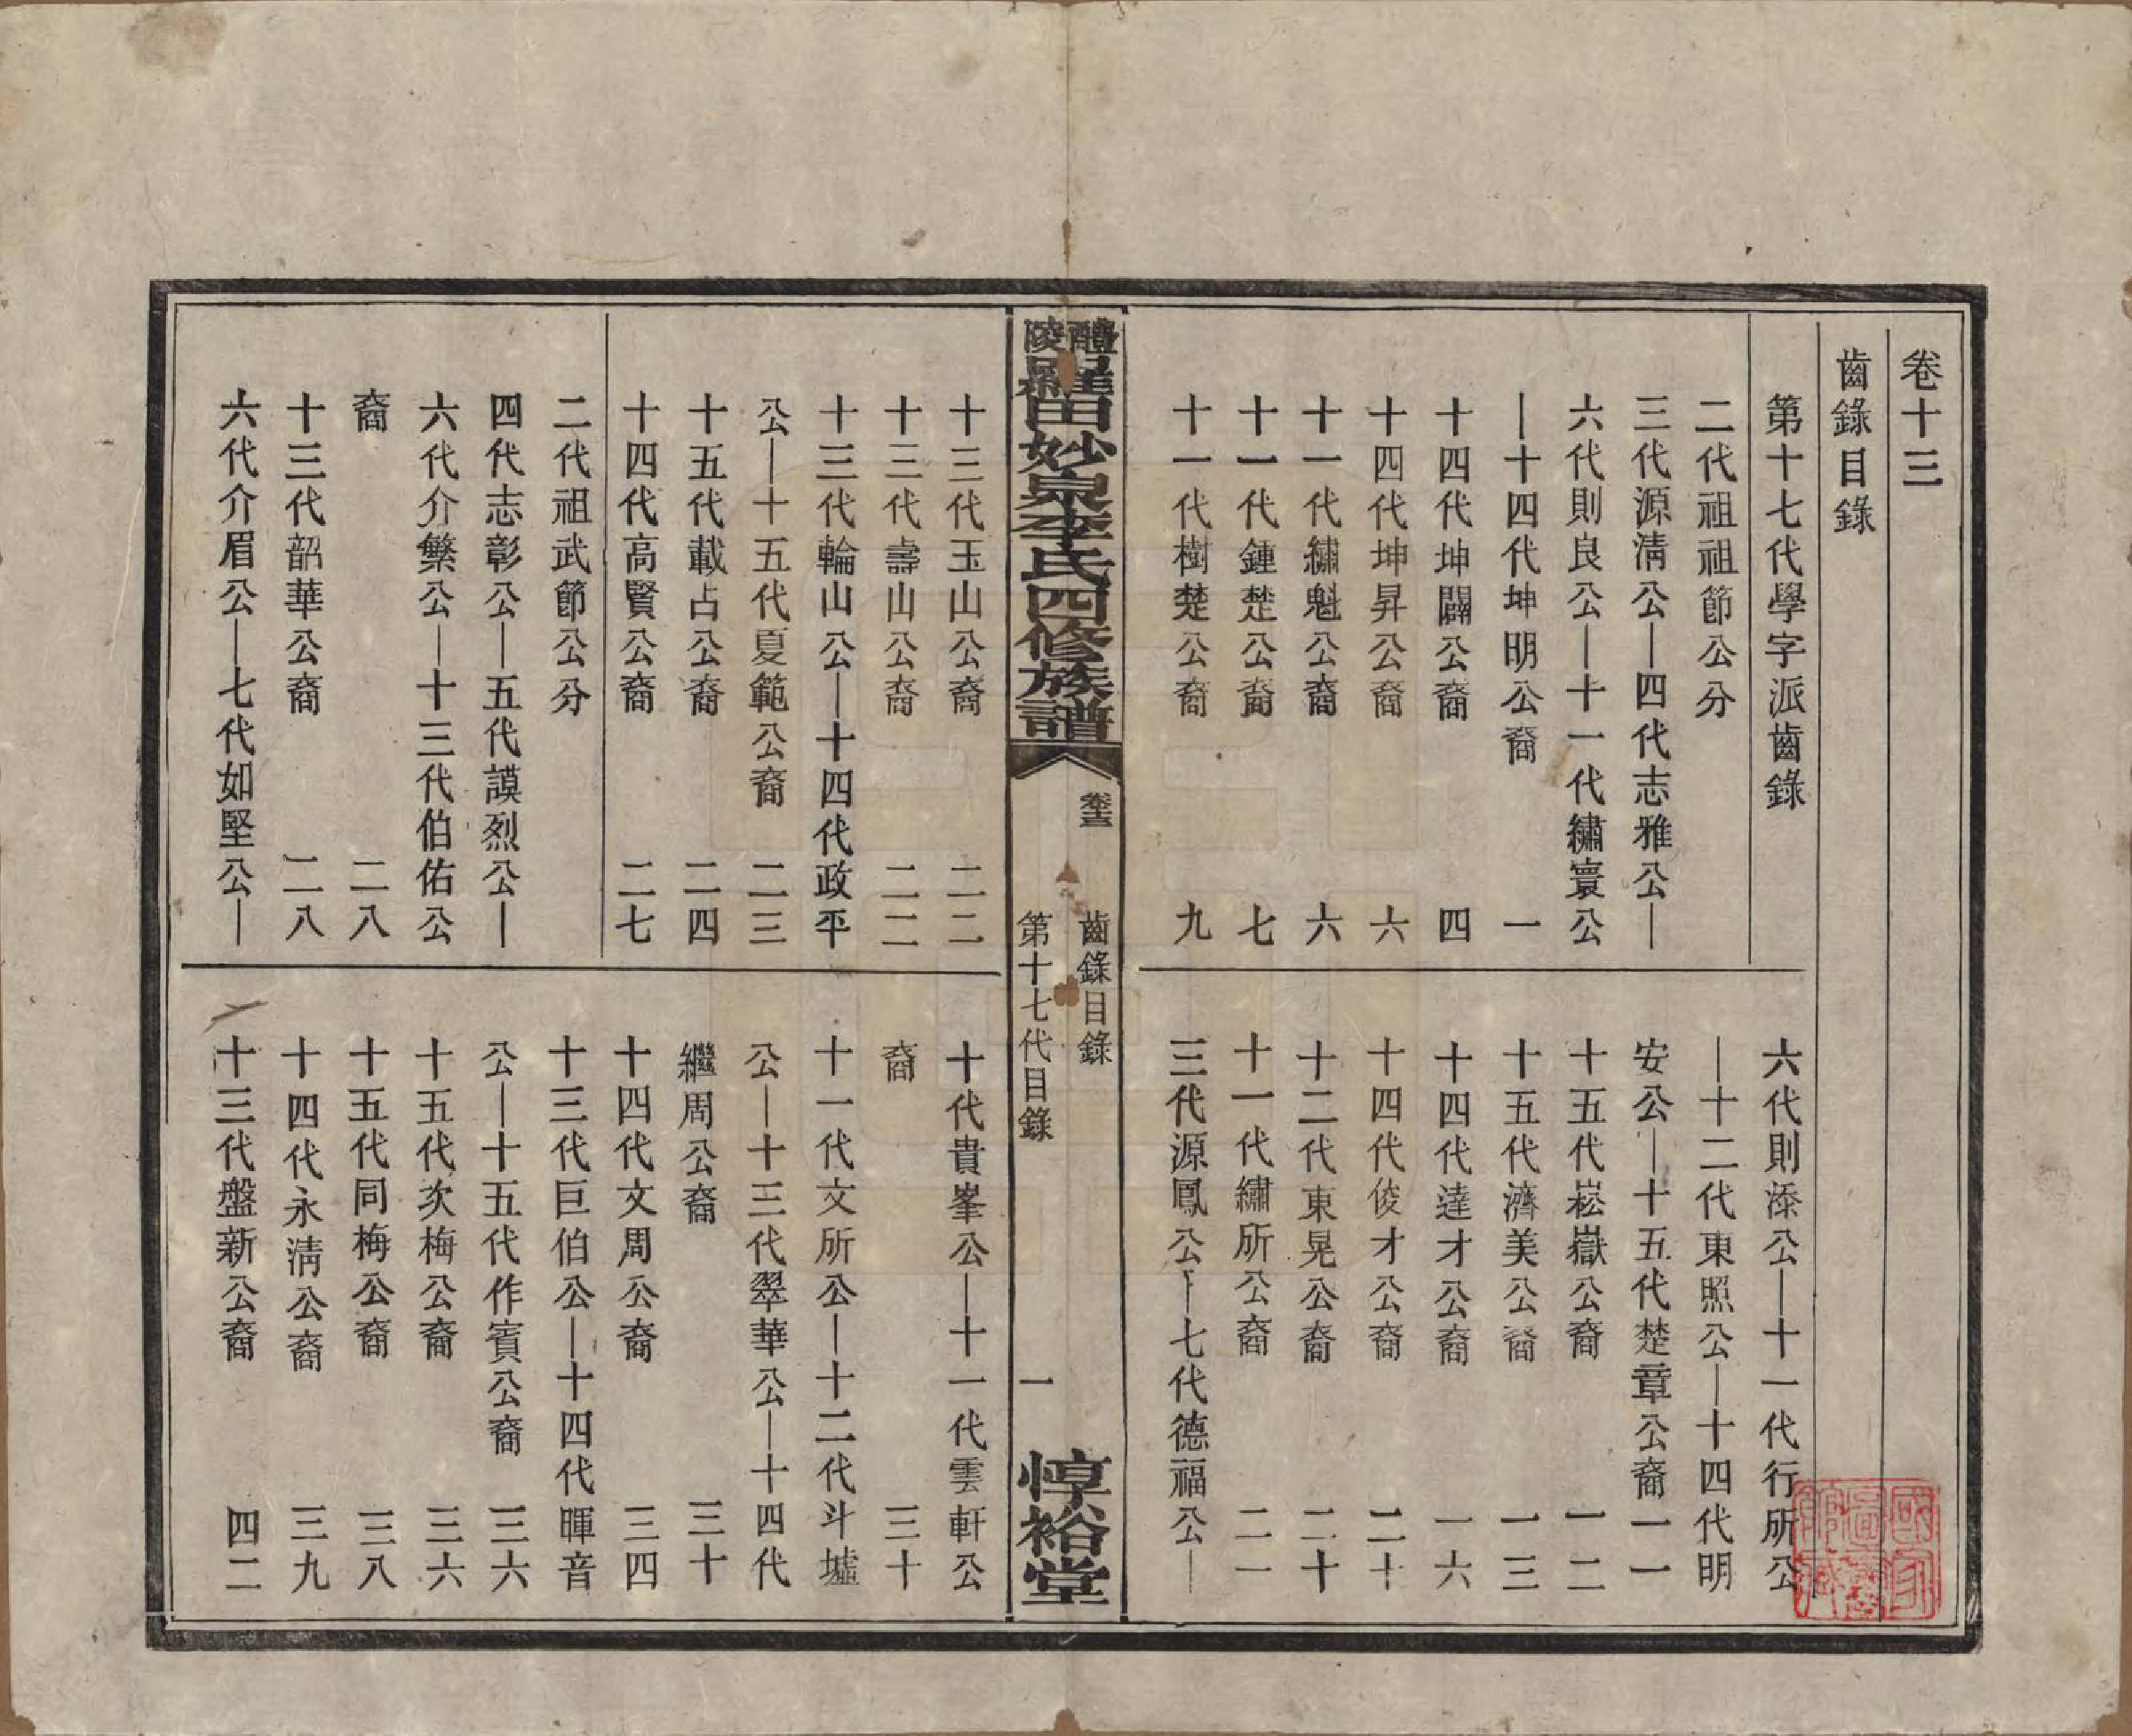 卷十三
齒錄目錄
第十七代學字派齒錄
二代祖祖節公分
三代源清公—四代志雅公—
六代則良公—十一代繡寰公
—十四代坤明公裔 一
十四代坤闢公裔 四
十四代坤昇公裔 六
十一代繡魁公裔 六
十一代鍾楚公裔 七
十一代樹楚公裔 九
六代則添公—十一代行所公
—十二代東照公—十四代明
安公—十五代楚章公裔 一一
十五代崧嶽公裔 一二
十五代濟美公裔 一三
十四代達才公裔 一六
十四代俊才公裔 二十
十二代東晃公裔 二十
十一代繡所公裔 二一
三代源鳳公—七代德福公—
醴陵羅田妙泉李氏四修族譜
卷十三
齒錄目錄
第十七代目錄
一
惇裕堂
十三代玉山公裔 二二
十三代壽山公裔 二二
十三代輪山公—十四代政平
公—十五代夏範公裔 二三
十五代載占公裔 二四
十四代高賢公裔 二七
二代祖武節公分
四代志彰公—五代謨烈公—
六代介繁公—十三代伯佑公
裔 二八
十三代韶華公裔 二八
六代介眉公—七代如堅公—
十代貴峯公—十一代雲軒公
裔 三十
十一代文所公—十二代斗墟
公—十三代翠華公—十四代
繼周公裔 三十
十四代文周公裔 三四
十三代巨伯公—十四代暉音
公—十五代作賓公裔 三六
十五代次梅公裔 三六
十五代同梅公裔 三八
十四代永清公裔 三九
十三代盤新公裔 四二